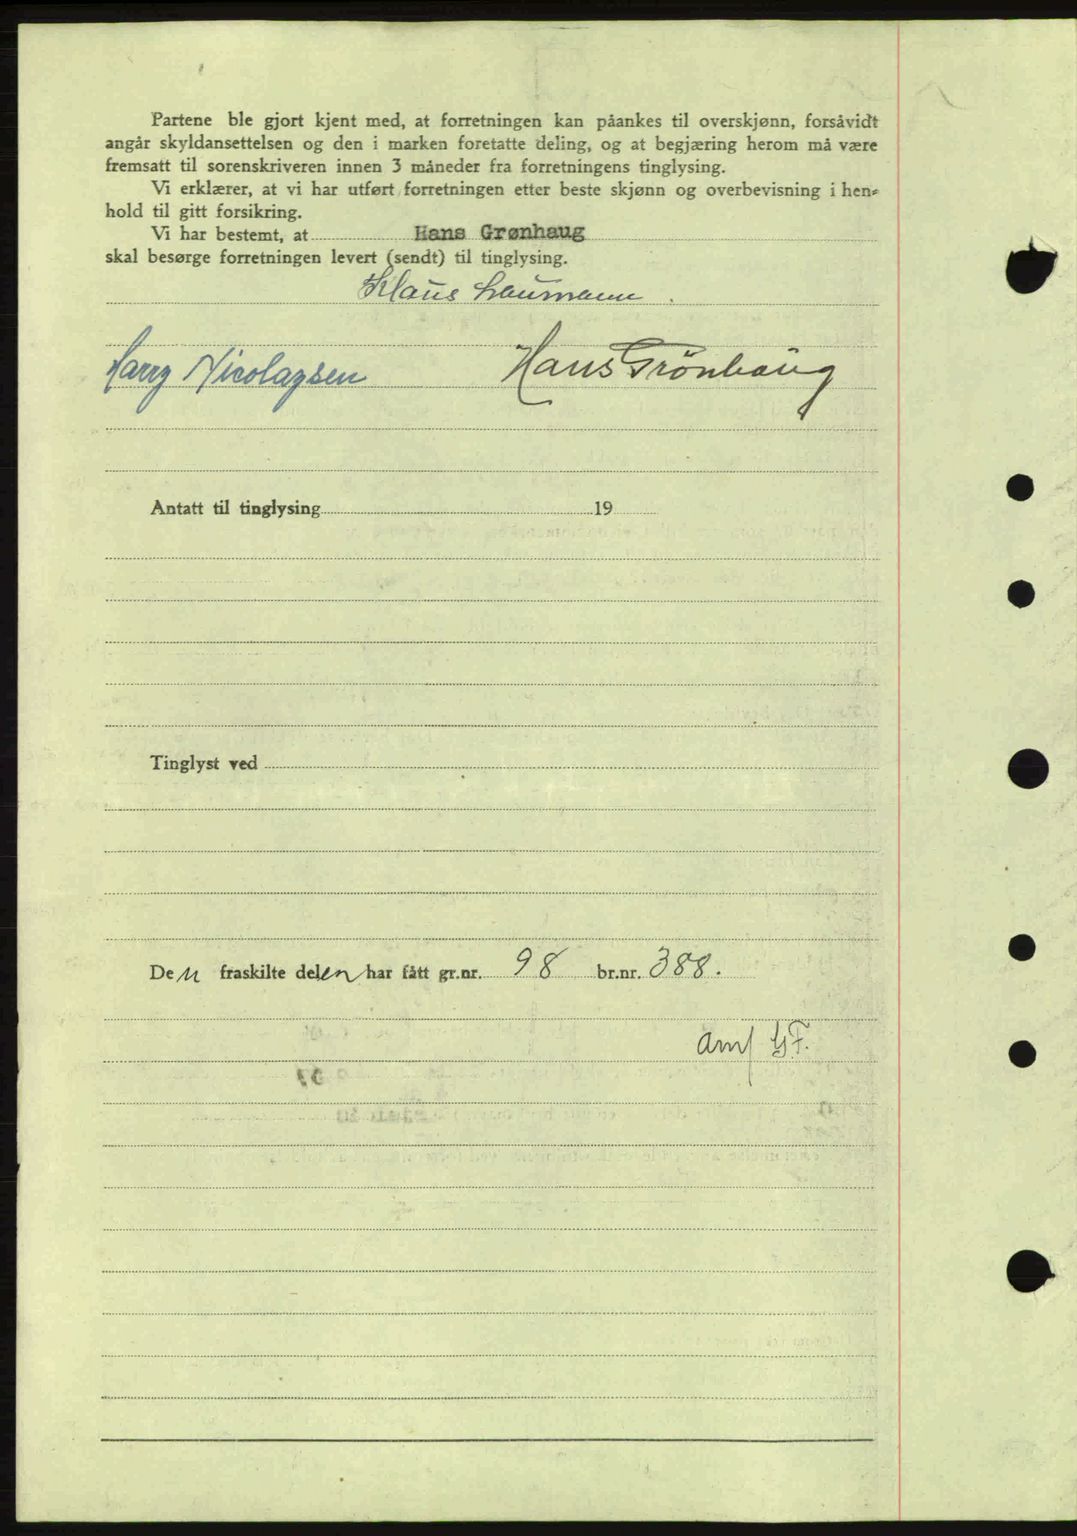 Partene ble gjort kjent med, at forretningen kan påankes til overskjønn, forsåvidt
angår skyldansettelsen og den i marken foretatte deling, og at begjæring herom må være
fremsatt til sorenskriveren innen 3 måneder fra forretningens tinglysing.
Vi erklærer, at vi har utført forretningen etter beste skjønn og overbevisning i hen-
hold til gitt forsikring.
Vi har bestemt, at Hans Grønhaug
skal besørge forretningen levert (sendt) til tinglysing.
Klaus Laumann
Harry Nicolaysen Hans Grönhaug
Antatt til tinglysing 19
Tinglyst ved
Den fraskilte delen har fått gr.nr. 98 br.nr. 388.